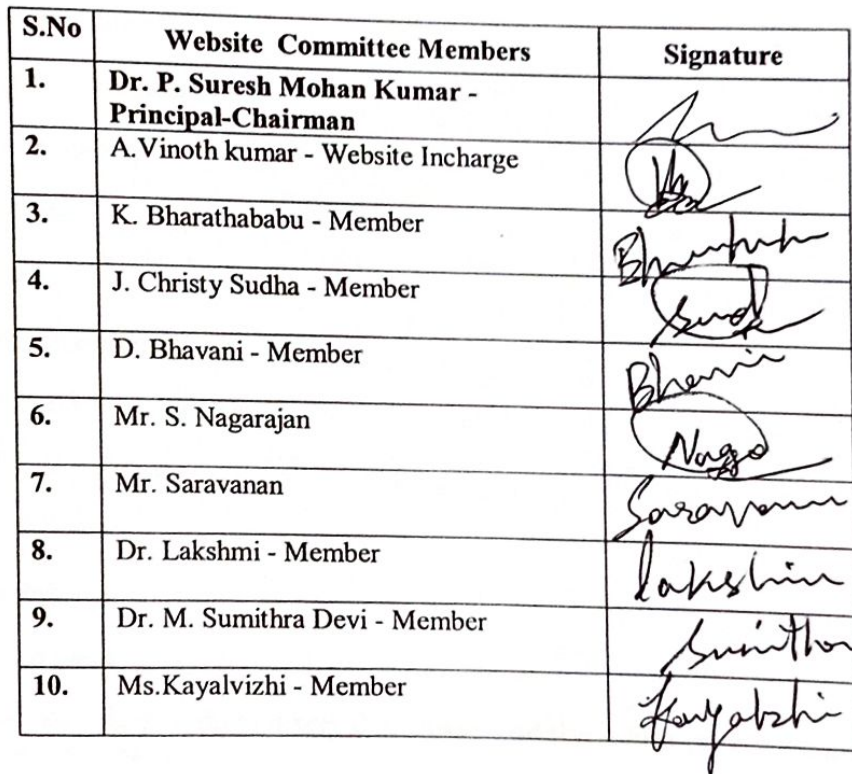 S.No Website Committee Members Signature
1. Dr. P. Suresh Mohan Kumar -
Principal-Chairman
2. A.Vinoth kumar - Website Incharge
3. K. Bharathababu - Member
4. J. Christy Sudha - Member
5. D. Bhavani - Member
6. Mr. S. Nagarajan
7. Mr. Saravanan
8. Dr. Lakshmi - Member
9. Dr. M. Sumithra Devi - Member
10. Ms.Kayalvizhi - Member